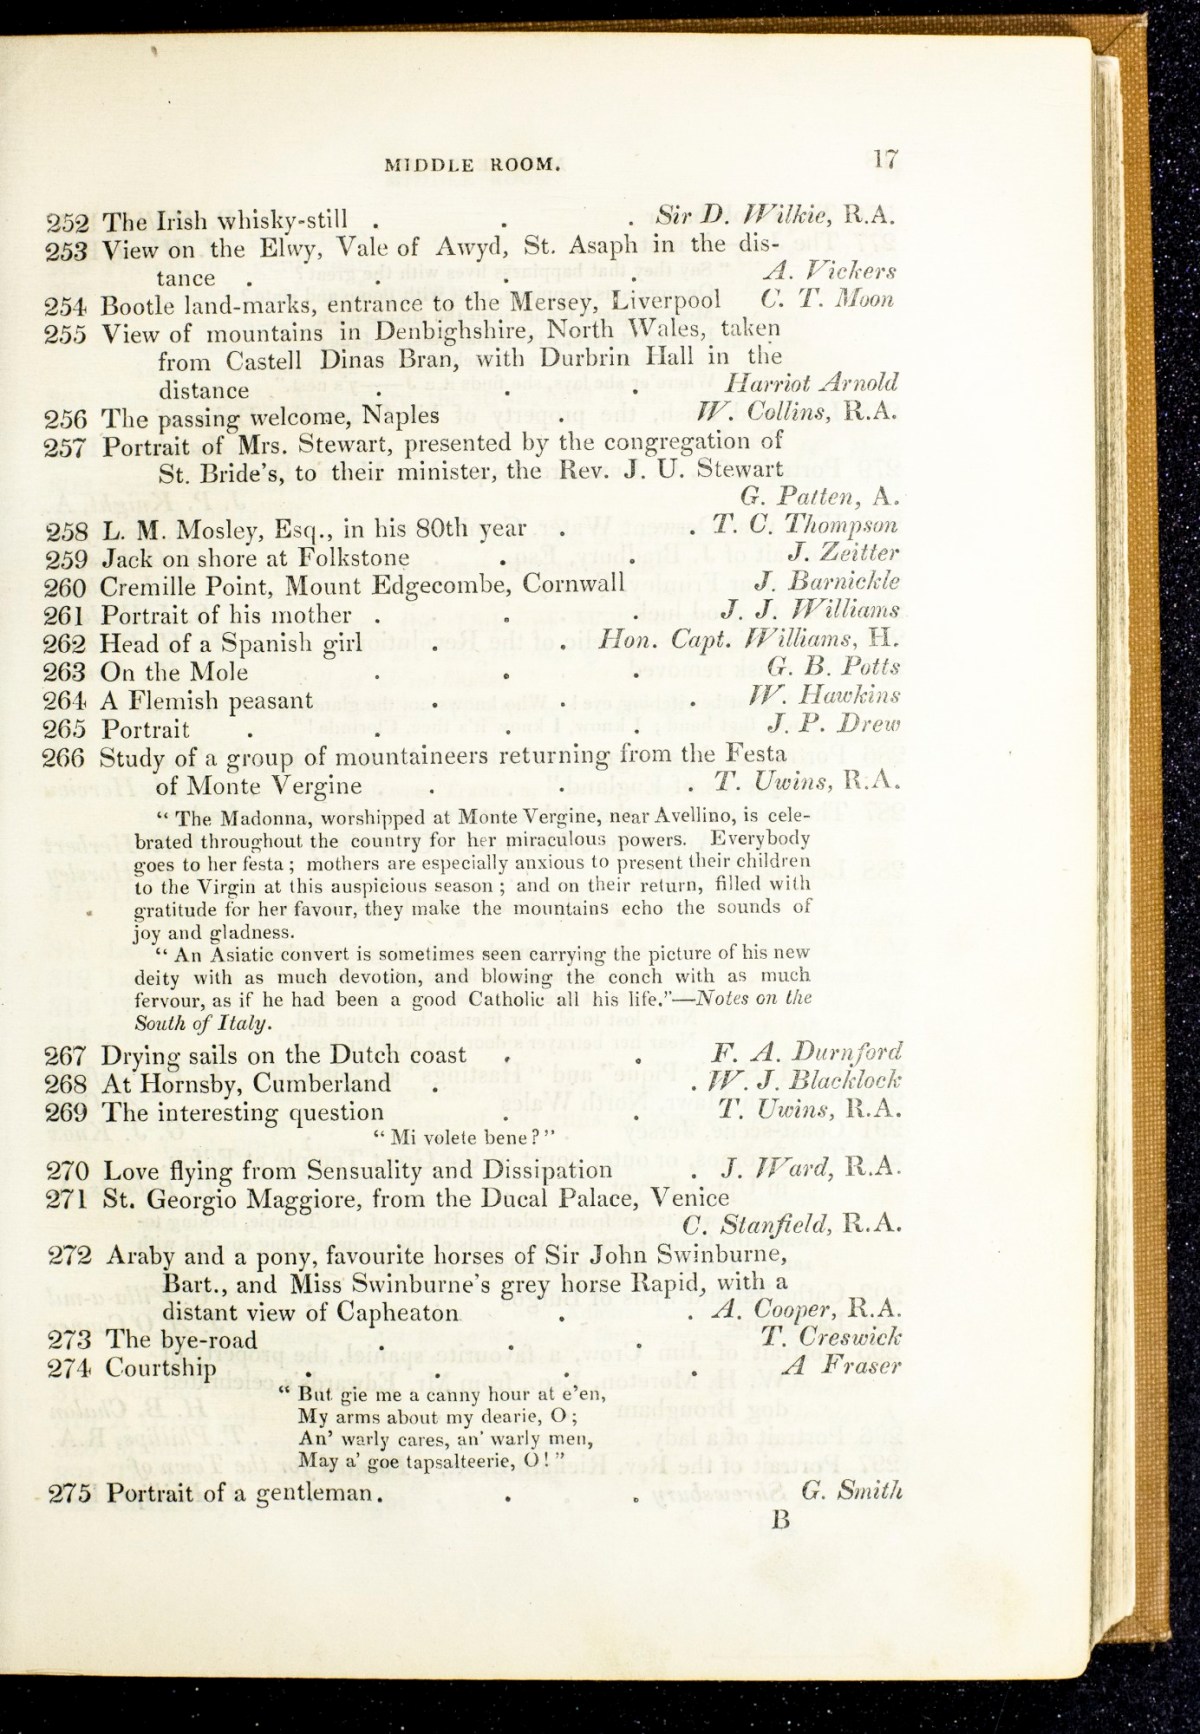 MIDDLE ROOM. 17
252 The Irish whisky-still . . . Sir D. Wilkie, R.A.
253 View on the Elwy, Vale of Awyd, St. Asaph in the dis-
tance . . . . A. Vickers
254 Bootle land-marks, entrance to the Mersey, Liverpool C. T. Moon
255 View of mountains in Denbighshire, North Wales, taken
from Castell Dinas Bran, with Durbrin Hall in the
distance . . . Harriot Arnold
256 The passing welcome, Naples . W. Collins, R.A.
257 Portrait of Mrs. Stewart, presented by the congregation of
St. Bride's, to their minister, the Rev. J. U. Stewart
G. Patten, A.
258 L. M. Mosley, Esq., in his 80th year . . T. C. Thompson
259 Jack on shore at Folkstone . . J. Zeitter
260 Cremille Point, Mount Edgecombe, Cornwall J. Barnickle
261 Portrait of his mother . . . J. J. Williams
262 Head of a Spanish girl . . Hon. Capt. Williams, H.
263 On the Mole . . . G. B. Potts
264 A Flemish peasant . . . W. Hawkins
265 Portrait . . . . J. P. Drew
266 Study of a group of mountaineers returning from the Festa
of Monte Vergine . . . T. Uwins, R.A.
“ The Madonna, worshipped at Monte Vergine, near Avellino, is cele-
brated throughout the country for her miraculous powers. Everybody
goes to her festa ; mothers are especially anxious to present their children
to the Virgin at this auspicious season ; and on their return, filled with
gratitude for her favour, they make the mountains echo the sounds of
joy and gladness.
“ An Asiatic convert is sometimes seen carrying the picture of his new
deity with as much devotion, and blowing the conch with as much
fervour, as if he had been a good Catholic all his life.”—Notes on the
South of Italy.
267 Drying sails on the Dutch coast . . F. A. Durnford
268 At Hornsby, Cumberland . . W. J. Blacklock
269 The interesting question . . T. Uwins, R.A.
“ Mi volete bene ? ”
270 Love flying from Sensuality and Dissipation . J. Ward, R.A.
271 St. Georgio Maggiore, from the Ducal Palace, Venice
C. Stanfield, R.A.
272 Araby and a pony, favourite horses of Sir John Swinburne,
Bart., and Miss Swinburne's grey horse Rapid, with a
distant view of Capheaton . . A. Cooper, R.A.
273 The bye-road . . . T. Creswick
274 Courtship . . . . A Fraser
“ But gie me a canny hour at e'en,
My arms about my dearie, O ;
An' warly cares, an' warly men,
May a' goe tapsalteerie, O ! ”
275 Portrait of a gentleman . . . G. Smith
B